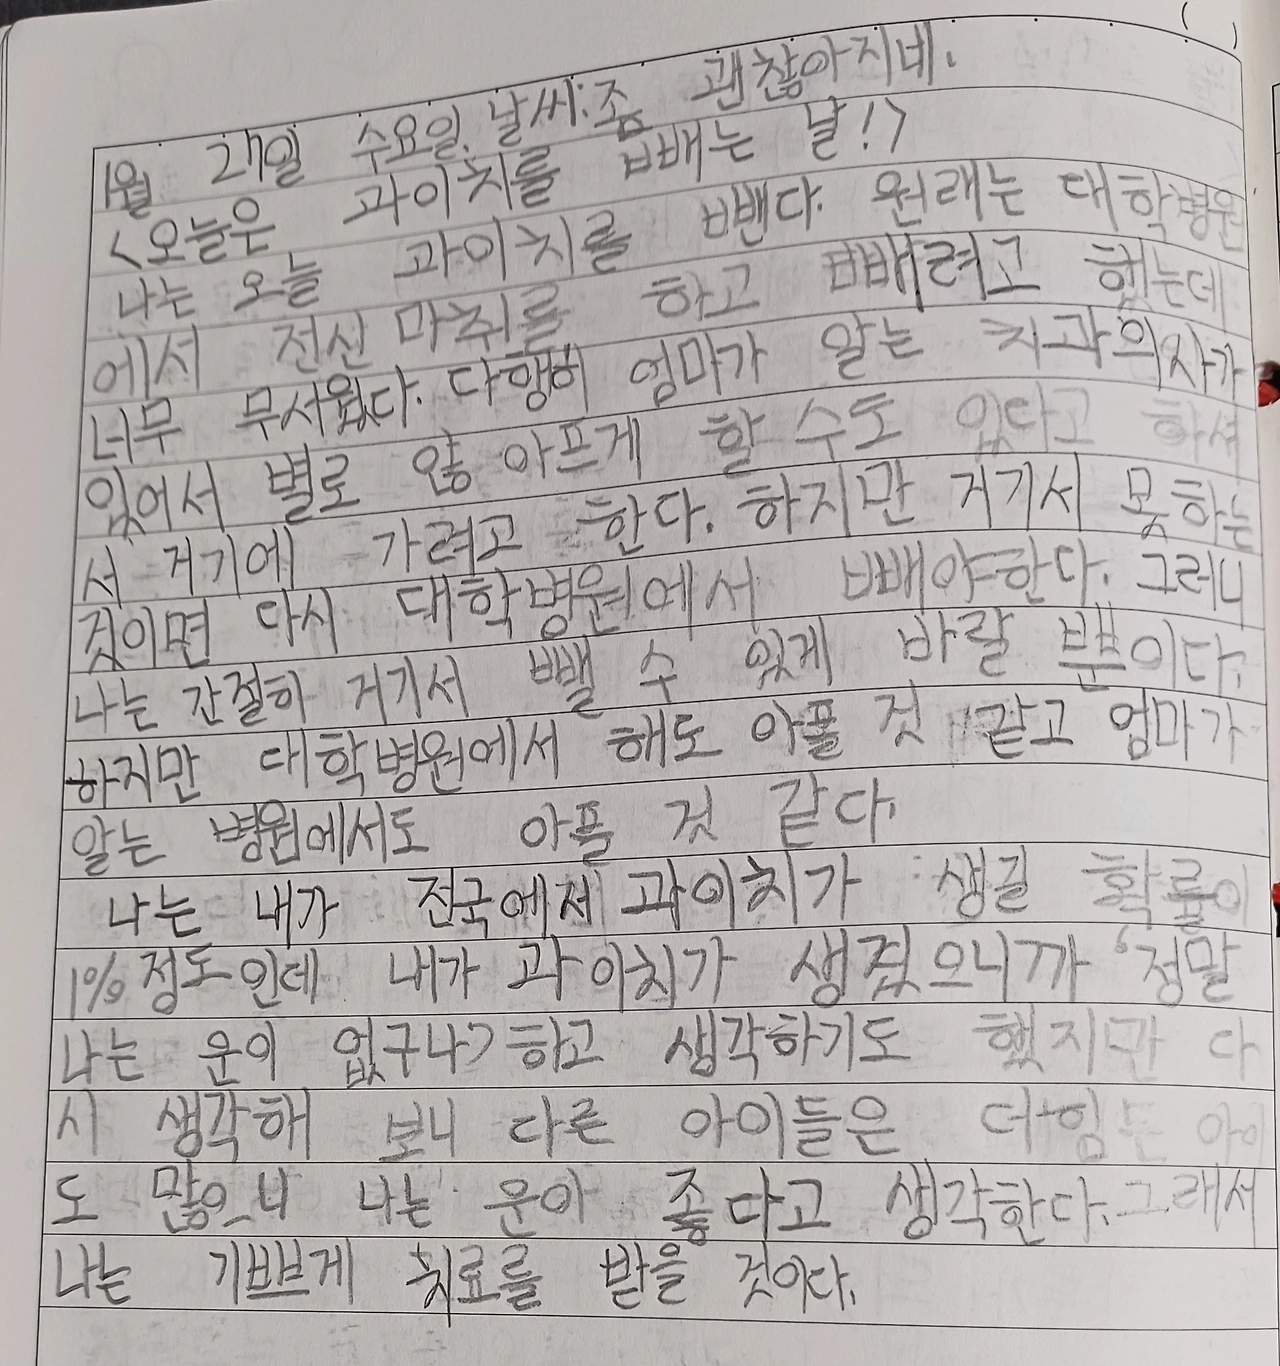 1월 27일 수요일. 날씨: 좀 괜찮아지네.
<오늘은 과이치를 빼는 날!>
나는 오늘 과이치를 뺀다. 원래는 대학병원
에서 전신 마취를 하고 빼려고 했는데
너무 무서웠다. 다행히 엄마가 알는 치과의사가
있어서 별로 않 아프게 할 수도 있다고 하셔
서 거기에 가려고 한다. 하지만 거기서 못하는
것이면 다시 대학병원에서 빼야한다. 그러니
나는 간절히 거기서 뺄 수 있게 바랄 뿐이다.
하지만 대학병원에서 해도 아플 것 같고 엄마가
알는 병원에서도 아플 것 같다.
나는 내가 전국에서 과이치가 생길 확률이
1% 정도인데 내가 과이치가 생겼으니까 '정말
나는 운이 없구나' 하고 생각하기도 했지만 다
시 생각해 보니 다른 아이들은 더 힘든 아이
도 많으니 나는 운이 좋다고 생각한다. 그래서
나는 기쁘게 치료를 받을 것이다.